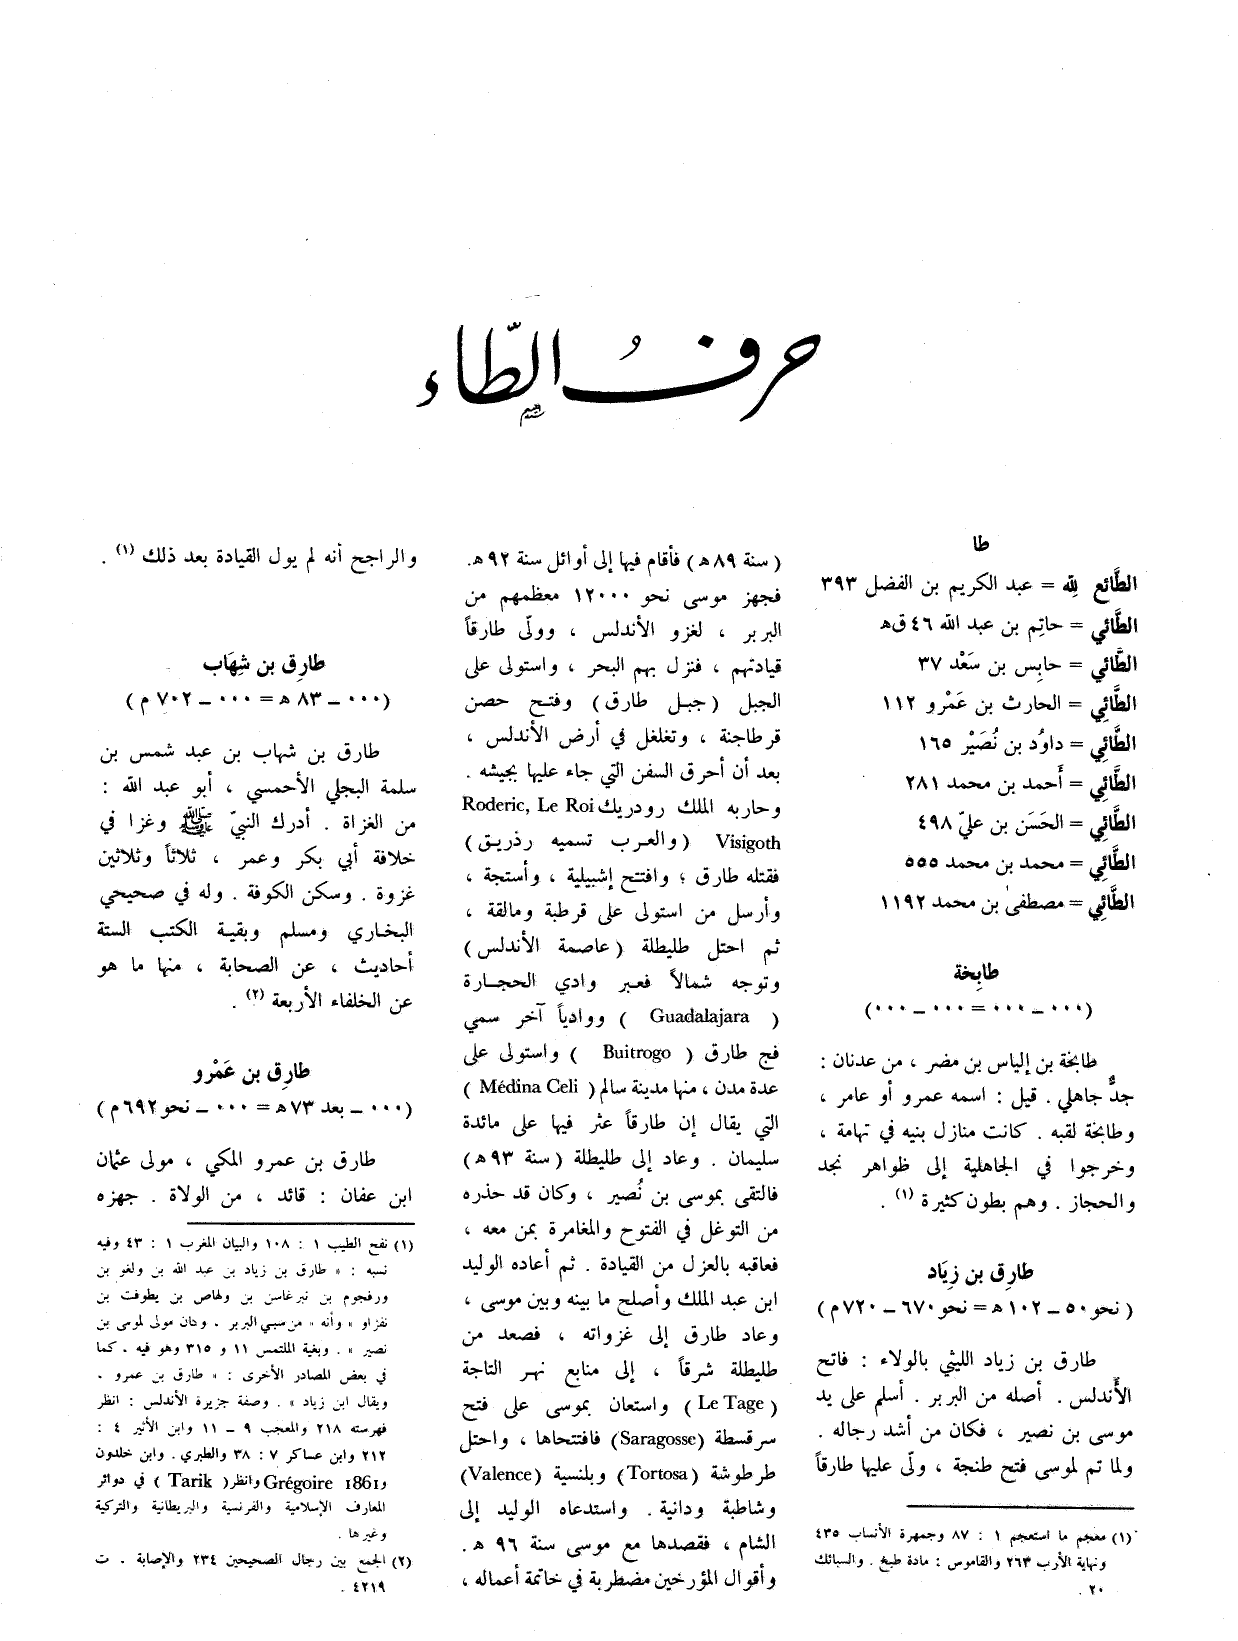 حرفُ الطّاء
طا
الطَّائع لله = عبد الكريم بن الفضل ٣٩٣
الطَّائي = حاتِم بن عبد الله ٤٦ ق‍ه
الطَّائي = حابِس بن سَعْد ٣٧
الطَّائي = الحارث بن عَمْرو ١١٢
الطَّائي = داوُد بن نُصَيْر ١٦٥
الطَّائي = أَحمد بن محمد ٢٨١
الطَّائي = الحَسَن بن عليّ ٤٩٨
الطَّائي = محمد بن محمد ٥٥٥
الطَّائي = مصطفىٰ بن محمد ١١٩٢
طابِخة
(٠٠٠ ــ ٠٠٠ = ٠٠٠ ــ ٠٠٠)
طابخة بن إلياس بن مضر ، من عدنان :
جدٌّ جاهلي . قيل : اسمه عمرو أو عامر ،
وطابخة لقبه . كانت منازل بنيه في تهامة ،
وخرجوا في الجاهلية إلى ظواهر نجد
والحجاز . وهم بطون كثيرة (١) .
طارِق بن زِيَاد
( نحو ٥٠ ــ ١٠٢ ه‍ = نحو ٦٧٠ ــ ٧٢٠ م)
طارق بن زياد الليثي بالولاء : فاتح
الأندلس . أصله من البربر . أسلم على يد
موسى بن نصير ، فكان من أشد رجاله .
ولما تم لموسى فتح طنجة ، ولّى عليها طارقاً
(١) معجم ما استعجم ١ : ٨٧ وجمهرة الأنساب ٤٣٥
ونهاية الأرب ٢٦٣ والقاموس : مادة طبخ . والسبائك
٢٠ .
(سنة ٨٩ ه‍) فأقام فيها إلى أوائل سنة ٩٢ ه‍.
فجهز موسى نحو ١٢٠٠٠ معظمهم من
البربر ، لغزو الأندلس ، وولّى طارقاً
قيادتهم ، فنزل بهم البحر ، واستولى على
الجبل (جبل طارق) وفتح حصن
قرطاجنة ، وتغلغل في أرض الأندلس ،
بعد أن أحرق السفن التي جاء عليها بجيشه .
وحاربه الملك رودريك Roderic, Le Roi
Visigoth (والعرب تسميه رذريق)
فقتله طارق ؛ وافتتح إشبيلية ، وأستجة ،
وأرسل من استولى على قرطبة ومالقة ،
ثم احتل طليطلة (عاصمة الأندلس)
وتوجه شمالاً فعبر وادي الحجارة
( Guadalajara ) ووادياً آخر سمي
فج طارق ( Buitrogo ) واستولى على
عدة مدن ، منها مدينة سالم ( Médina Celi )
التي يقال إن طارقاً عثر فيها على مائدة
سليمان . وعاد إلى طليطلة (سنة ٩٣ ه‍)
فالتقى بموسى بن نُصير ، وكان قد حذره
من التوغل في الفتوح والمغامرة بمن معه ،
فعاقبه بالعزل من القيادة . ثم أعاده الوليد
ابن عبد الملك وأصلح ما بينه وبين موسى ،
وعاد طارق إلى غزواته ، فصعد من
طليطلة شرقاً ، إلى منابع نهر التاجة
( Le Tage ) واستعان بموسى على فتح
سرقسطة (Saragosse) فافتتحاها ، واحتل
طرطوشة (Tortosa) وبلنسية (Valence)
وشاطبة ودانية . واستدعاه الوليد إلى
الشام ، فقصدها مع موسى سنة ٩٦ ه‍.
وأقوال المؤرخين مضطربة في خاتمة أعماله ،
والراجح أنه لم يول القيادة بعد ذلك (١) .
طارِق بن شِهَاب
(٠٠٠ ــ ٨٣ ه‍ = ٠٠٠ ــ ٧٠٢ م)
طارق بن شهاب بن عبد شمس بن
سلمة البجلي الأحمسي ، أبو عبد الله :
من الغزاة . أدرك النبيّ ﷺ وغزا في
خلافة أبي بكر وعمر ، ثلاثاً وثلاثين
غزوة . وسكن الكوفة . وله في صحيحي
البخاري ومسلم وبقية الكتب الستة
أحاديث ، عن الصحابة ، منها ما هو
عن الخلفاء الأربعة (٢) .
طارِق بن عَمْرو
(٠٠٠ ــ بعد ٧٣ ه‍ = ٠٠٠ ــ نحو ٦٩٢ م)
طارق بن عمرو المكي ، مولى عثمان
ابن عفان : قائد ، من الولاة . جهزه
(١) نفح الطيب ١ : ١٠٨ والبيان المغرب ١ : ٤٣ وفيه
نسبه : « طارق بن زياد بن عبد الله بن ولغو بن
ورفجوم بن نبرغاسن بن ولهاص بن يطوفت بن
نفزاو » وأنه « من سبي البربر . وكان مولى لموسى بن
نصير » . وبغية الملتمس ١١ و ٣١٥ وهو فيه . كما
في بعض المصادر الأخرى : « طارق بن عمرو .
ويقال ابن زياد » . وصفة جزيرة الأندلس : انظر
فهرسته ٢١٨ والمعجب ٩ ــ ١١ وابن الأثير ٤ :
٢١٢ وابن عساكر ٧ : ٣٨ والطبري . وابن خلدون
و Grégoire 1861 وانظر ( Tarik ) في دوائر
المعارف الإسلامية والفرنسية والبريطانية والتركية
وغيرها .
(٢) الجمع بين رجال الصحيحين ٢٣٤ والإصابة . ت
٤٢١٩ .